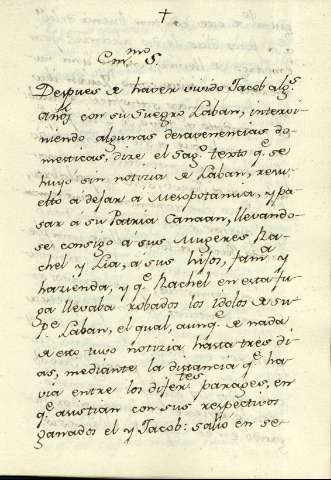 +
Emmo. S.
Despues de haver vivido Jacob algs.
años con su suegro Laban, intervi-
niendo algunas desavenencias do-
mesticas, dice el Sagº. texto qe. se
huyó sin notizia de Laban, resu-
elto a dejar a Mesopotamia, y pa-
sar a su Patria Canaan, llevando-
se consigo a sus Mugeres Ra-
chel y Lia, a sus hijos, fama. y
hazienda, y qe. Rachêl en esta fu-
ga llevaba robados los idolos de su
pe. Laban, el qual, aunqe. de nada
de esto tuvo notizia hasta tres di-
as, mediante la distancia qe. ha-
via entre los difertes. parages, en
qe. asistian con sus respectivos
ganados el y Jacob: salió en se-